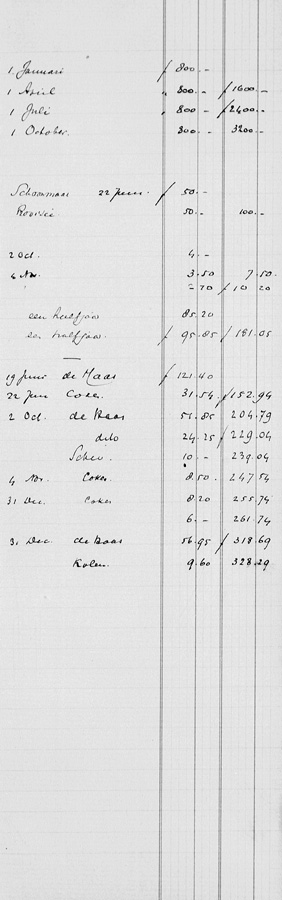 1 Januari ƒ 800.-
1 April " 800.- ƒ 1600.-
1 Juli " 800.- ƒ 2400.-
1 October. 800.- 3200.-
Schoormaas 22 Juni. ƒ 50.-
50.- 100.-
2 Oct. 4.-
4 Nov. 3.50 7.50
2.70 ƒ 10 20
een halfjaar 85.20
een halfjaar. ƒ 95.85 ƒ 181.05
19 Juni de Maas ƒ 121.40
22 Juni Cokes. 31.54 ƒ 152.94
2 Oct. de Maas 51.85 204.79
dito 24.25 ƒ 229.04
10.- 239.04
4 Nov. Cokes 8.50 247.54
31 Dec. Cokes 8.20 255.74
6.- 261.74
31 Dec. de Maas 56.95 ƒ 318.69
Kolen. 9.60 328.29